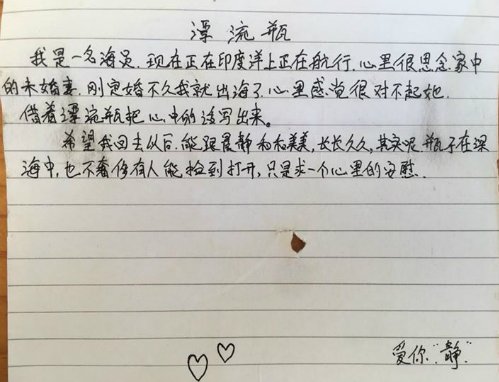 漂流瓶
我是一名海员,现在正在印度洋上正在航行,心里很思念家中
的未婚妻,刚定婚不久我就出海了,心里感觉很对不起她,
借着漂流瓶把心中的话写出来。
希望我回去以后,能跟晨静和和美美,长长久久,其实呢,瓶子在深
海中,也不奢侈有人能捡到打开,只是求一个心里的安慰.
爱你"静"